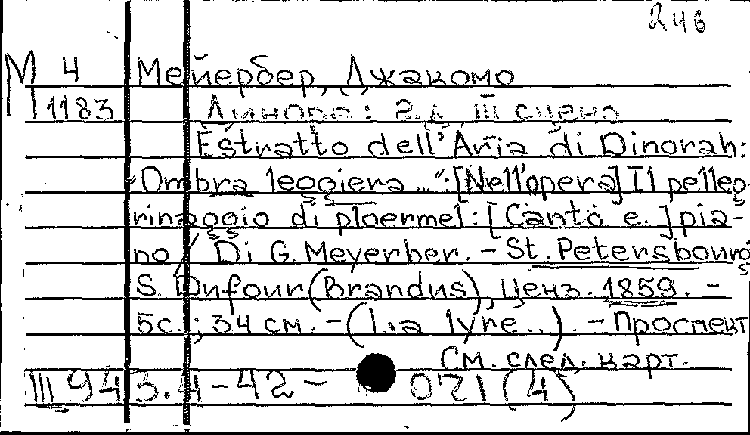 246
М 4 Мейербер, Джакомо
1183 Динора: 2 д. III сцена
Estratto dell'Aria di Dinorah:
"Ombra leggiera...":[Nell'opera] Il pelleg-
rinaggio di ploermel: [Canto e.] pia-
no / Di G. Meyerber. – St. Petersbourg
S. Dufour (Brandus), Ценз. 1859. –
5с.; 34 см. – (La lyre...). – Проспект
См. след. карт.
III 943.4-42- 021(4)